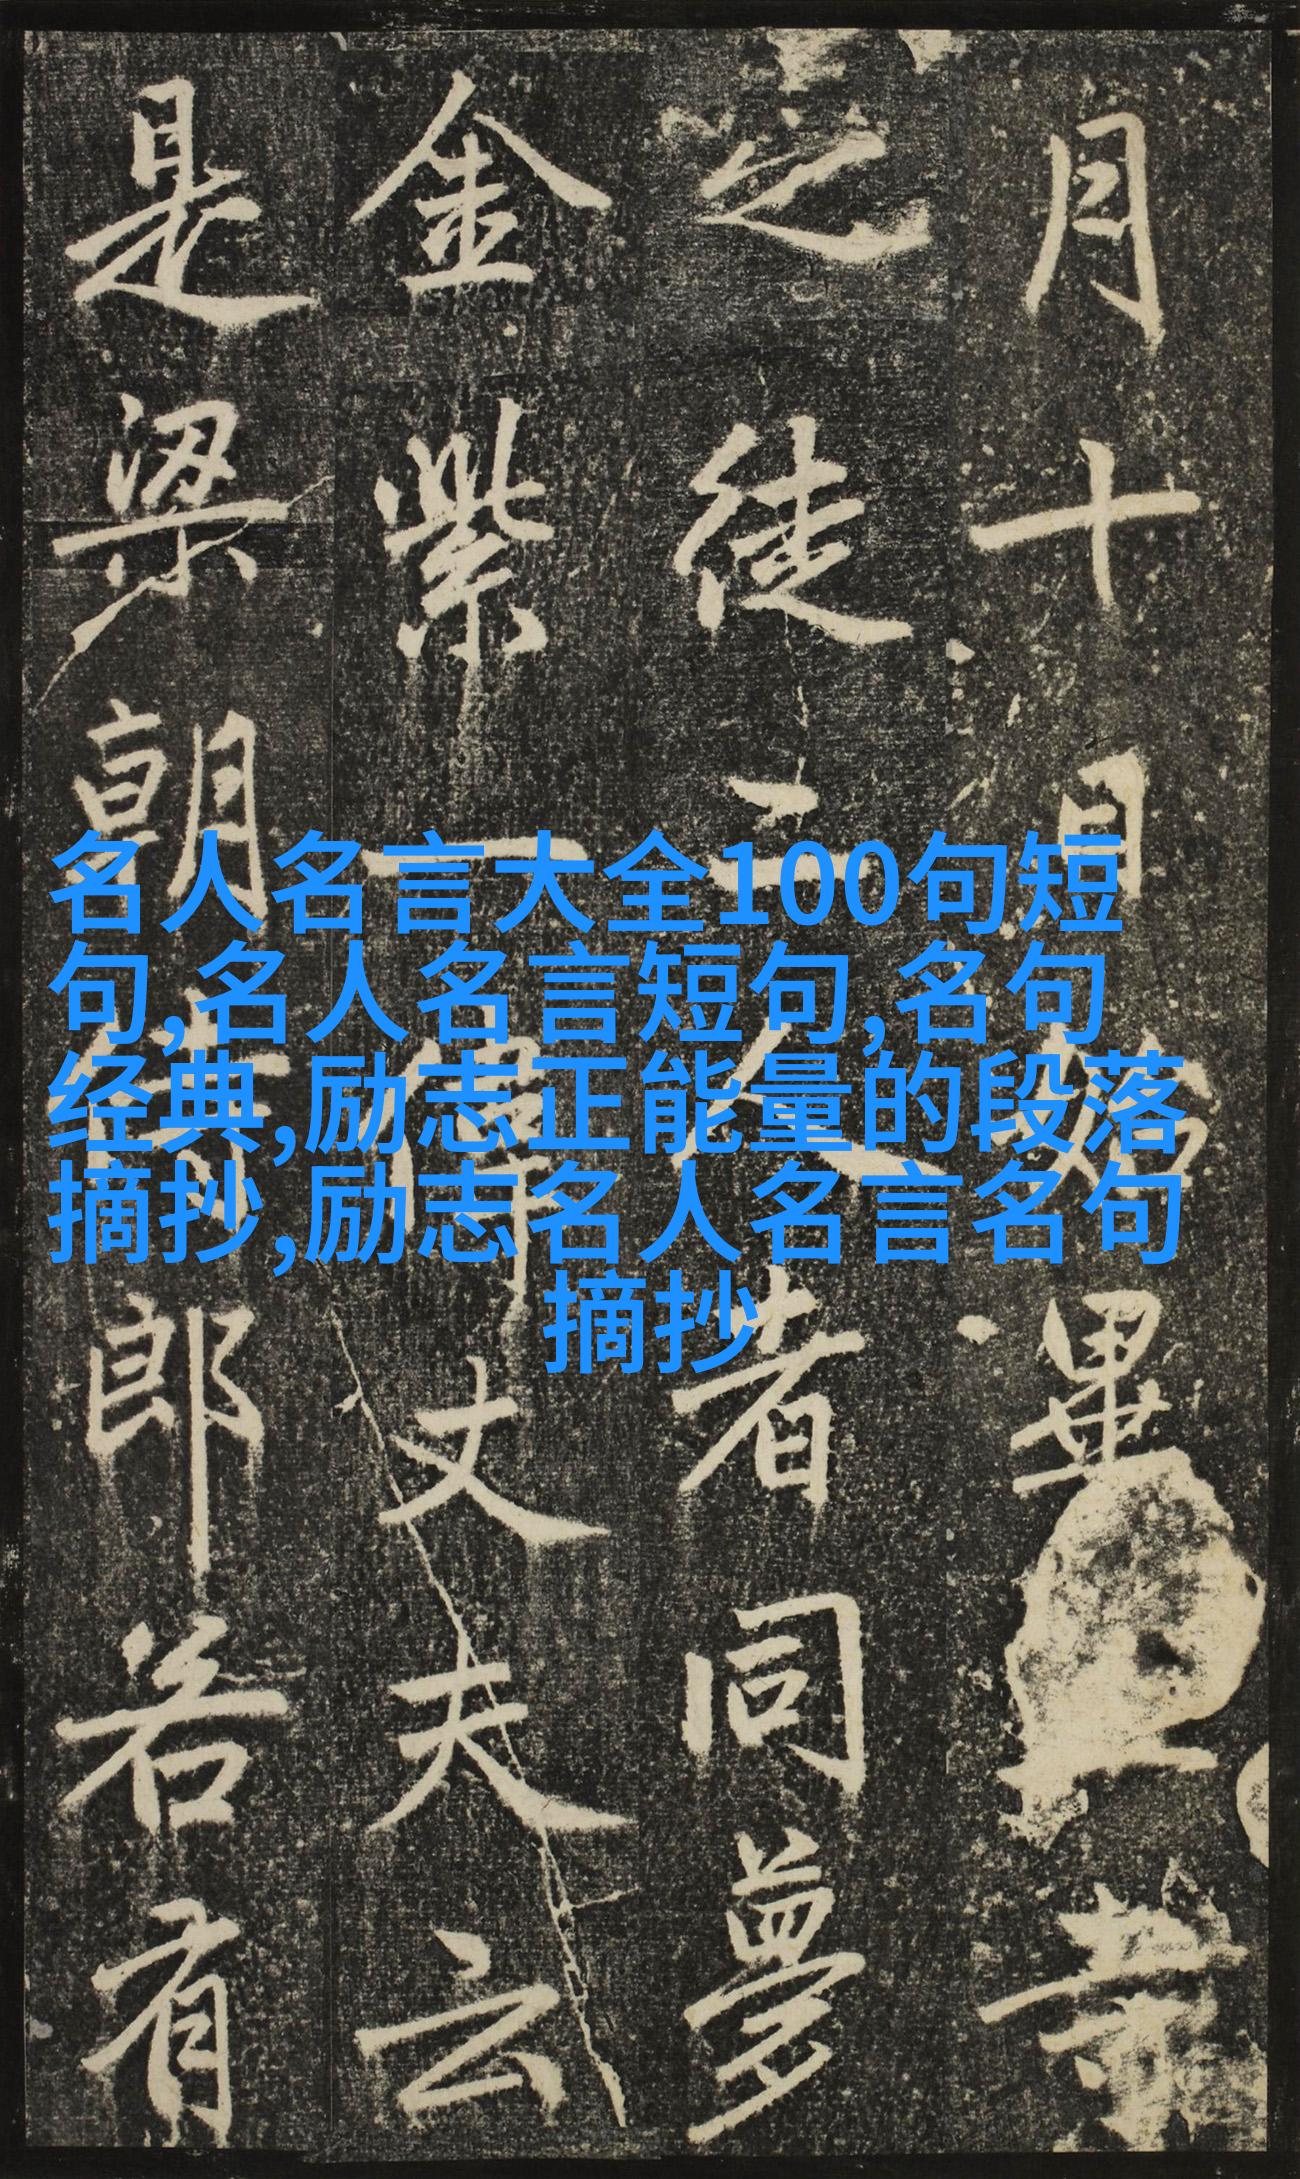 月十日始畢
之徒三人者同夢
金紫一偉丈夫云
是梁朝侍郎若有
名人名言大全100句短
句,名人名言短句,名句
经典,励志正能量的段落
摘抄,励志名人名言名句
摘抄